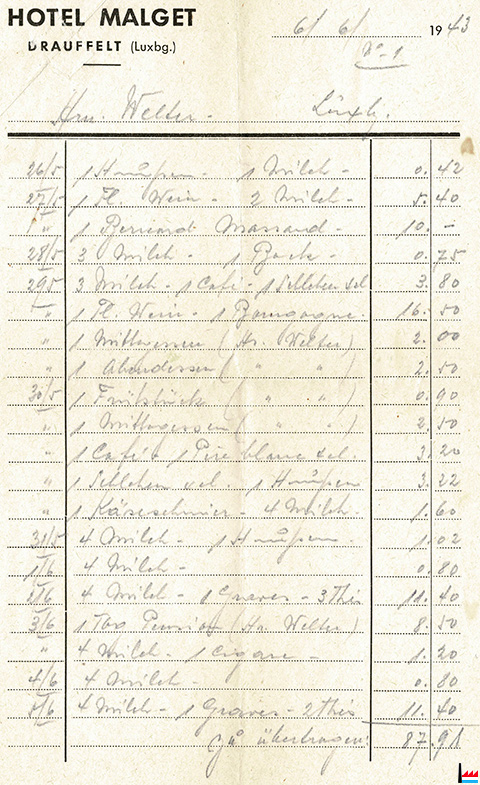 HOTEL MALGET
DRAUFFELT (Luxbg.)
6/ 6/ 1943
No 1
Hrn. Welter - Luxbg.
26/5 1 - 1 Milch - 0. 42
27/5 1 Fl. Wein - 2 Milch - 5. 40
" 1 Bernard Massard - 10. -
28/5 3 Milch - 1 Bock - 0. 75
29/5 3 Milch - 1 Café - 1 Schlehen sel 3. 80
" 1 Fl. Wein - 1 Bourgogne - 16. 50
" 1 Mittagessen (Hr. Welter) 2. 00
" 1 Abendessen ( " " ) 2. 50
30/5 1 Frühstück ( " " ) 0. 90
" 1 Mittagessen ( " " ) 2. 50
" 1 Café + 1 blanc sel. 3. 20
" 1 Schlehen sel. 1 3. 22
" 1 Käseschmier - 4 Milch - 1. 60
31/5 4 Milch - 1 1. 02
1/6 4 Milch - 0. 80
2/6 4 Milch - 1 Graves - 3 Thés 11. 40
3/6 1 Tag Pension (Hr. Welter) 8. 50
" 4 Milch - 1 Cigare - 1. 20
4/6 4 Milch - 0. 80
5/6 4 Milch - 1 Graves - 2 Thés 11. 40
zu übertragen: 87. 91